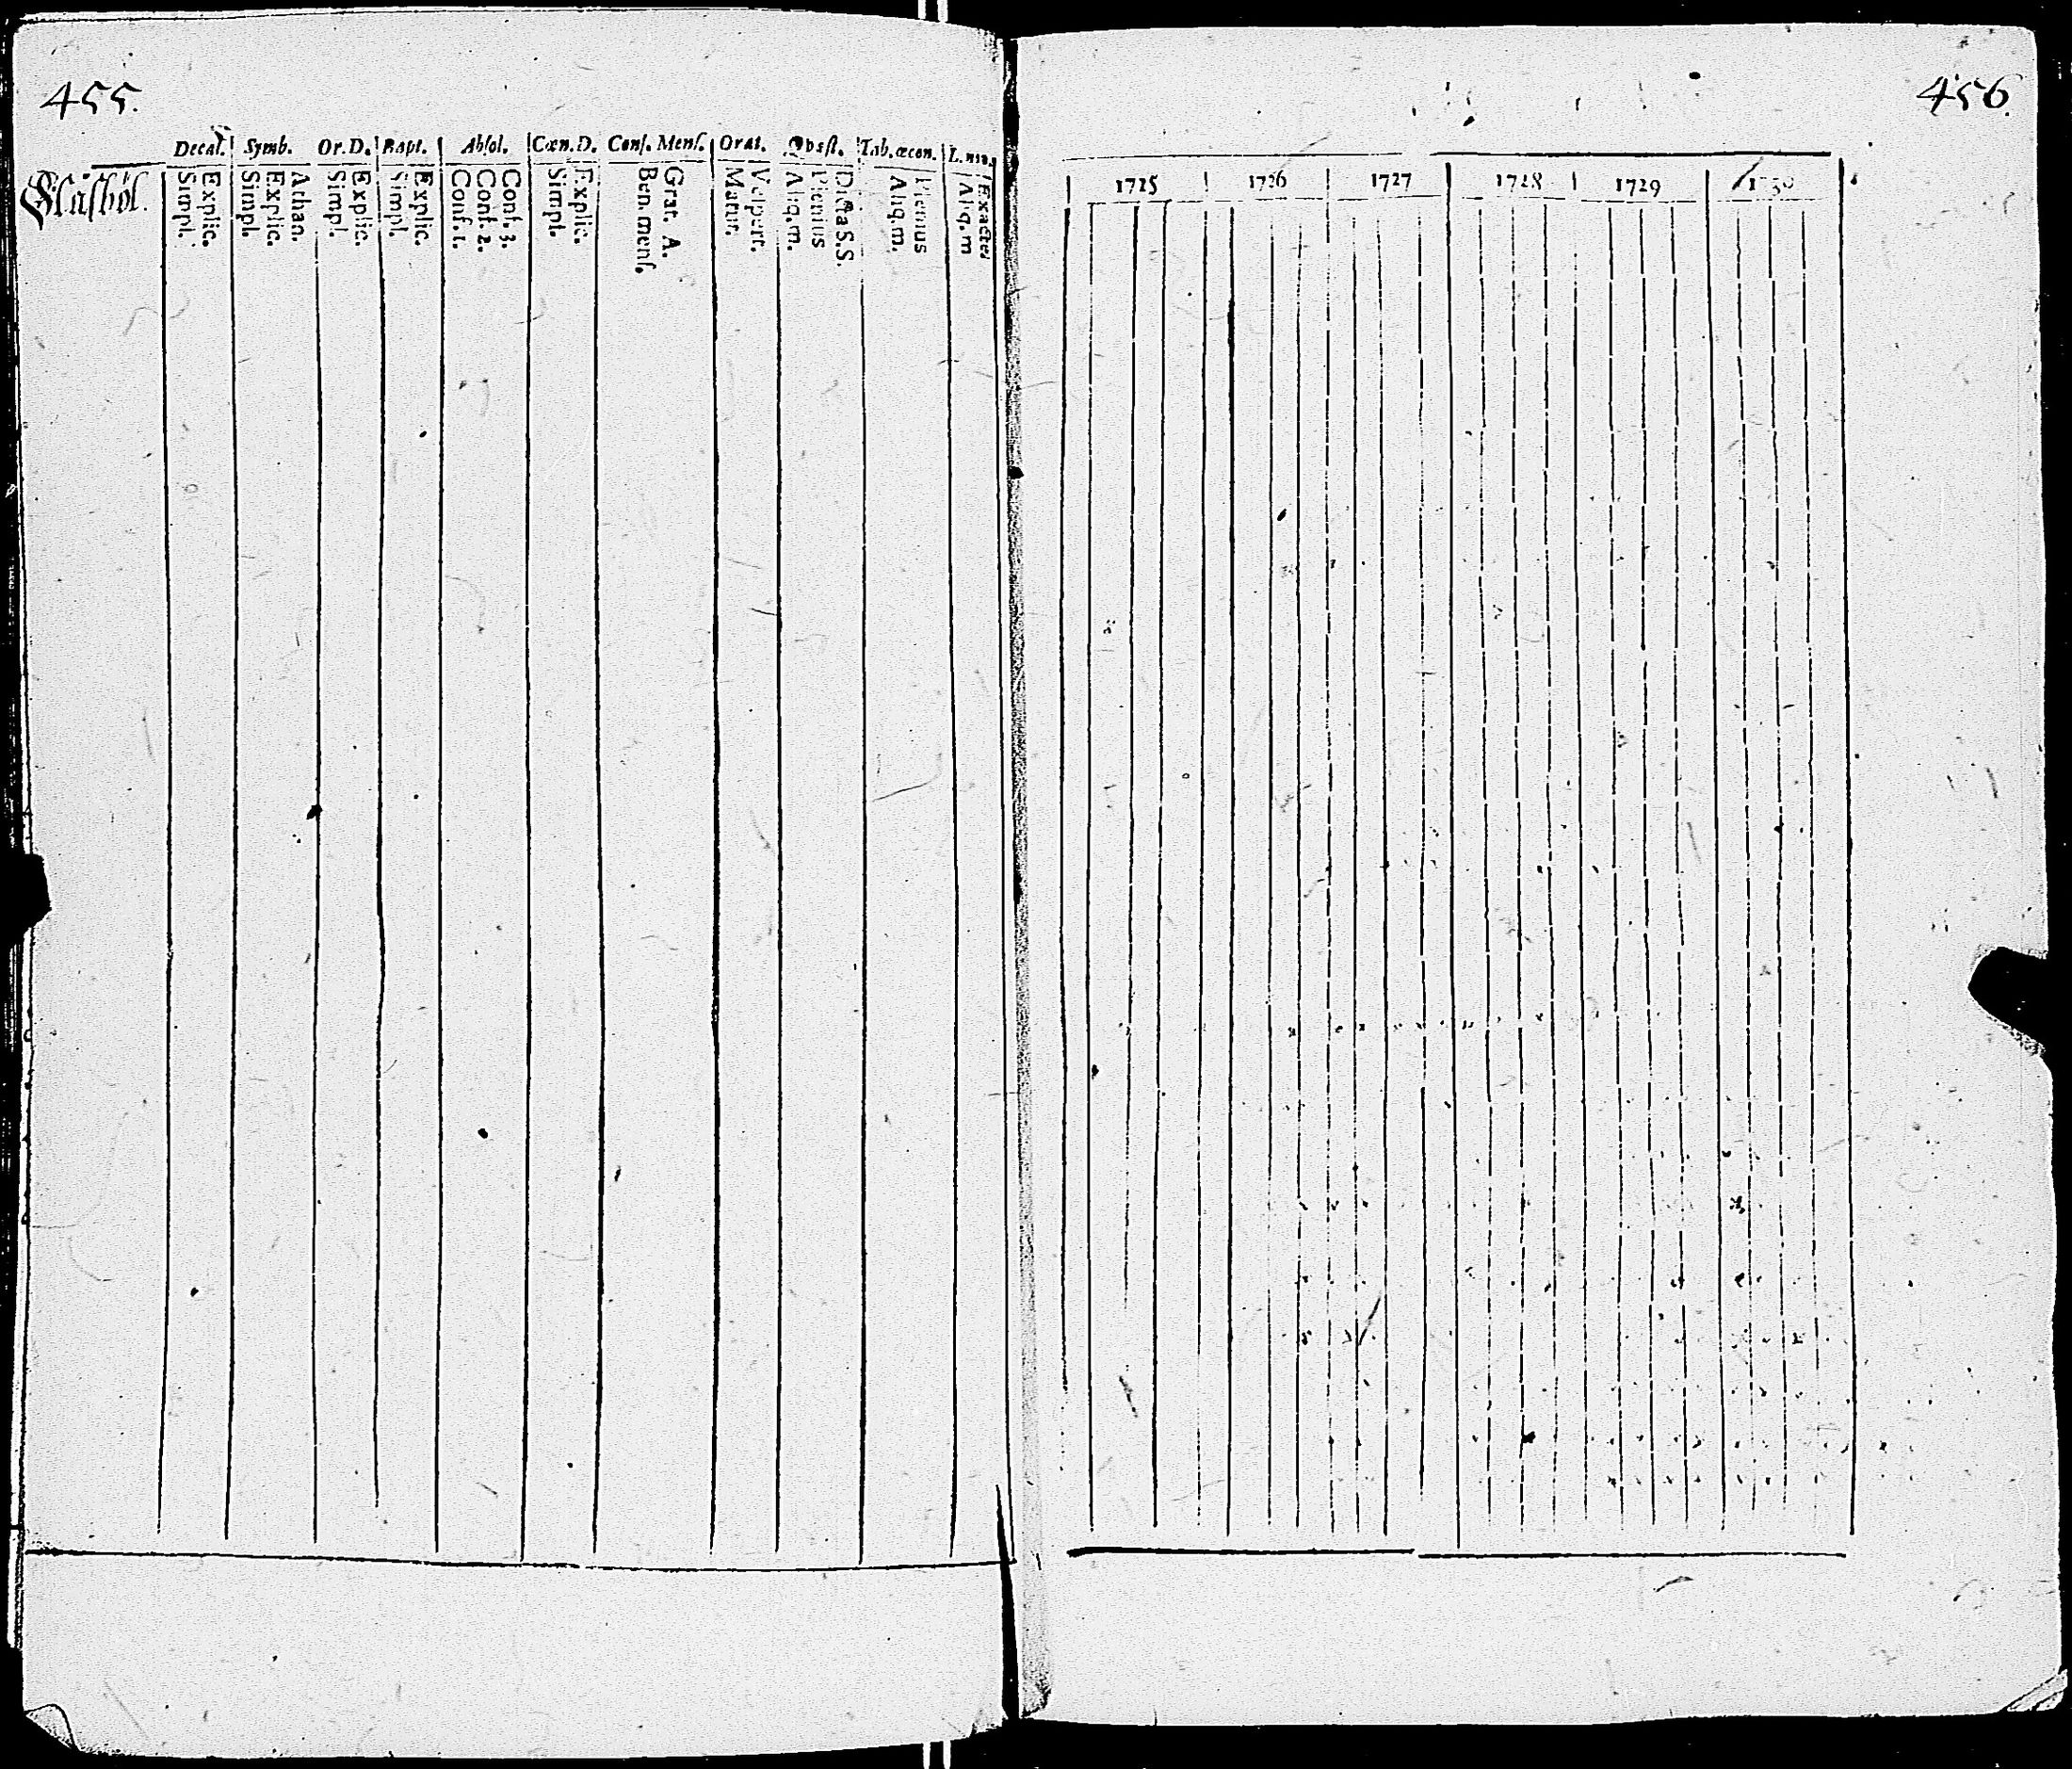 455.
456.
Decal. Symb. Or.D. Bapt. Absol. Cœn.D. Conſ. Menſ. Orat. Qvæſt. Tab.œcon.
Explic.
Simpl.
Athan.
Explic.
Simpl.
Explic.
Simpl.
Explic.
Simpl.
Conf. 3.
Conf. 2.
Conf. 1.
Explic.
Simpl.
Grat. A.
Ben. menſ.
Veſpert.
Matut.
Dicta S.S.
Plenius
Aliq.m.
Plenius
Aliq.m.
Exacte
Aliq.m
1725 1726 1727 1728 1729 1730